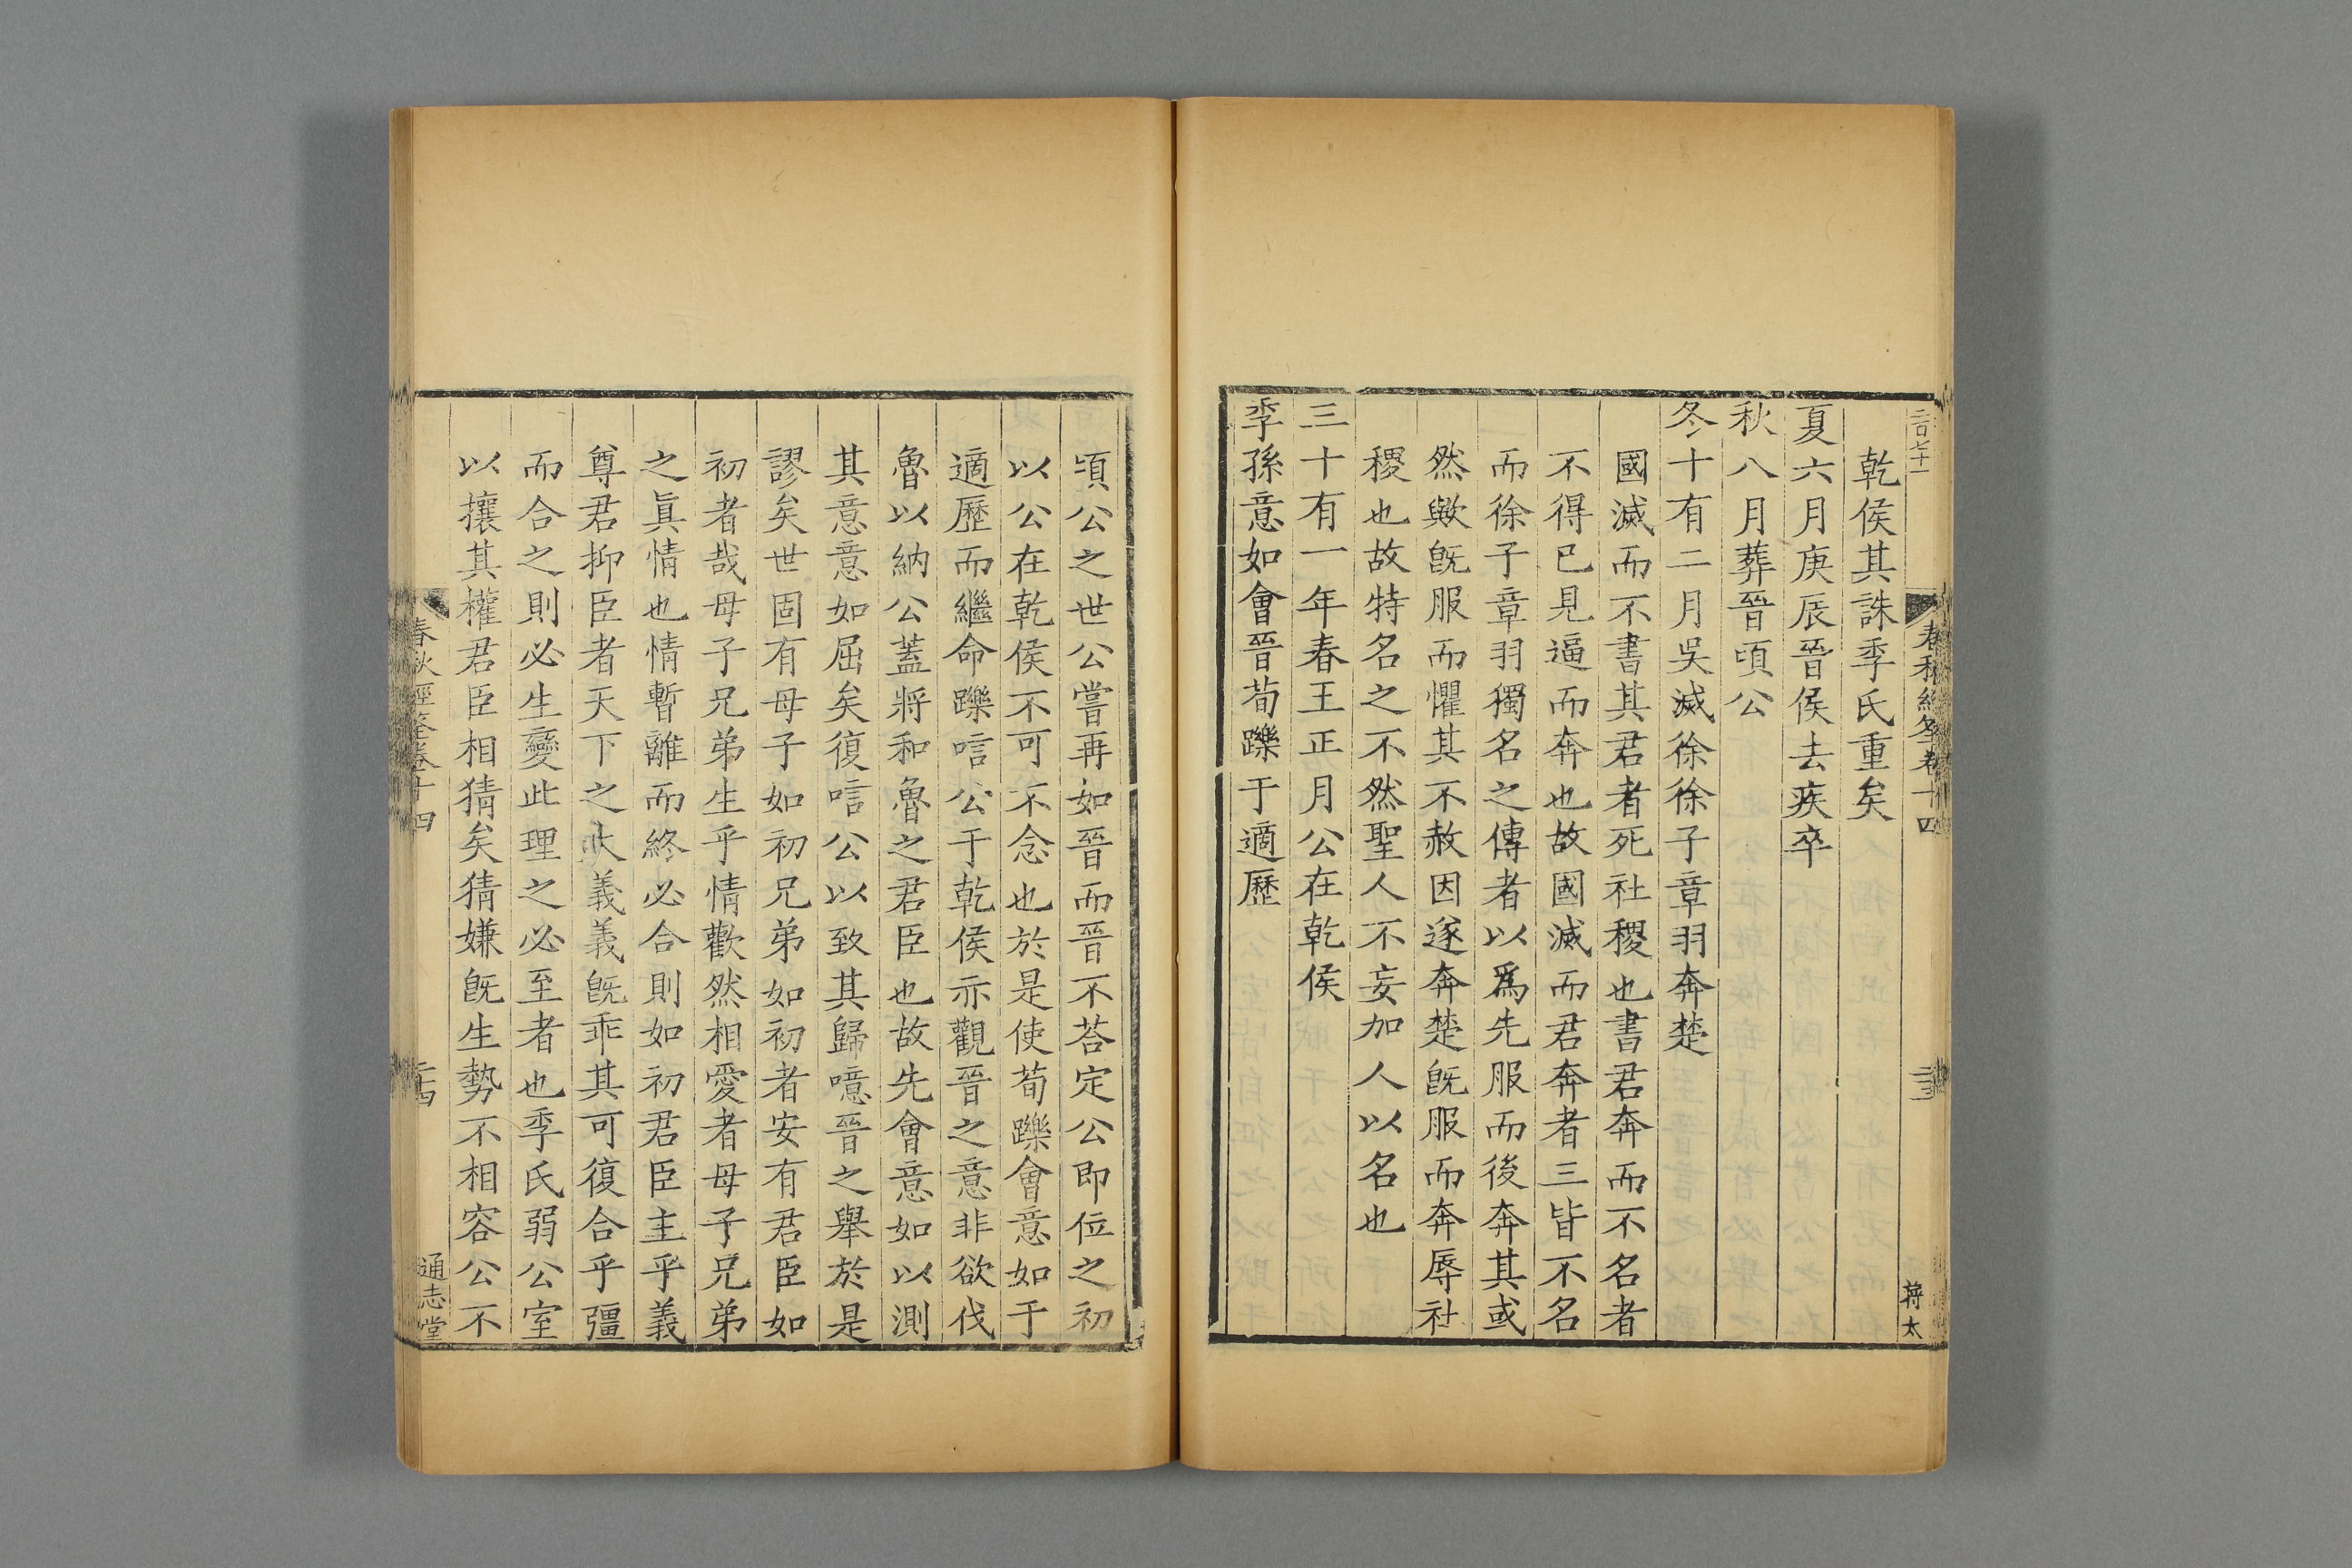 乾侯其誅季氏重矣
夏六月庚辰晉侯去疾卒
秋八月葬晉頃公
冬十有二月吳滅徐徐子章羽奔楚
國滅而不書其君者死社稷也書君奔而不名者
不得已見逼而奔也故國滅而君奔者三皆不名
而徐子章羽獨名之傳者以爲先服而後奔其或
然歟旣服而懼其不赦因遂奔楚旣服而奔辱社
稷也故特名之不然聖人不妄加人以名也
三十有一年春王正月公在乾侯
季孫意如會晉荀躒于適歷
春秋經筌卷十四
二十三
蔣太
頃公之世公嘗再如晉而晉不荅定公即位之初
以公在乾侯不可不念也於是使荀躒會意如于
適歷而繼命躒唁公于乾侯示觀晉之意非欲伐
魯以納公蓋將和魯之君臣也故先會意如以測
其意意如屈矣復唁公以致其歸噫晉之舉於是
謬矣世固有母子如初兄弟如初者安有君臣如
初者哉母子兄弟生乎情歡然相愛者母子兄弟
之眞情也情暫離而終必合則如初君臣主乎義
尊君抑臣者天下之大義義旣乖其可復合乎彊
而合之則必生變此理之必至者也季氏弱公室
以攘其權君臣相猜矣猜嫌旣生勢不相容公不
春秋經筌卷十四
通志堂